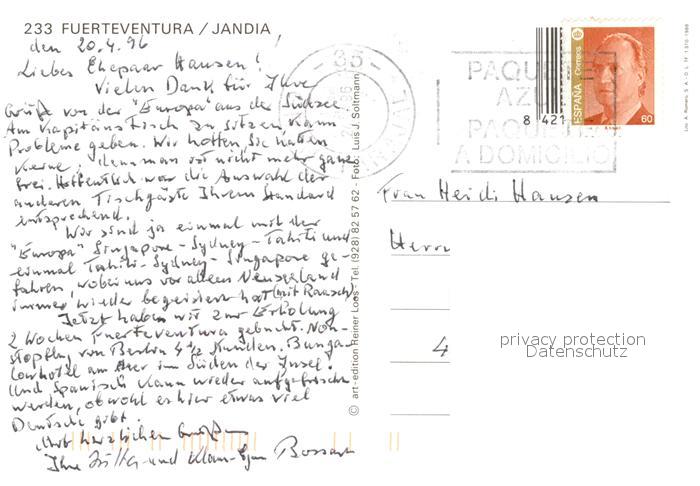 233 FUERTEVENTURA / JANDIA
den 20.4.96
Liebes Ehepaar Hansen!
Vielen Dank für Ihre
Grüße von der "Europa" aus der Südsee.
Am Kapitänstisch zu sitzen kann
Probleme geben. Wir hatten Sie hatten
keine, denn man ist nicht mehr ganz
frei. Hoffentlich war die Auswahl der
anderen Tischgäste Ihrem Standard
entsprechend.
Wir sind ja einmal mit der
"Europa" Singapore-Sydney-Tahiti und
einmal Tahiti-Sydney-Singapore ge-
fahren, wobei uns vor allem Neuseeland
immer wieder begeistert hat (mit Rausch)
Jetzt haben wir zur Erholung
2 Wochen Fuerteventura gebucht. Non-
stopflug von Berlin 4 1/2 Stunden. Bunga-
lowhotel am Meer im Süden der Insel.
Und Spanisch kann wieder aufgefrischt
werden, obwohl es hier etwas viel
Deutsche gibt.
Mit herzlichen Grüßen
Ihre und Klaus- Bossart
© art-edition Reiner Loos - Tel. (928) 82 57 62 - Foto: Luis J. Soltmann
35
PAQUETE
AZUL
PAQUETE
A DOMICILIO
8 421
ESPAÑA Correos
60
Frau Heidi Hansen
Herrn
4
privacy protection
Datenschutz